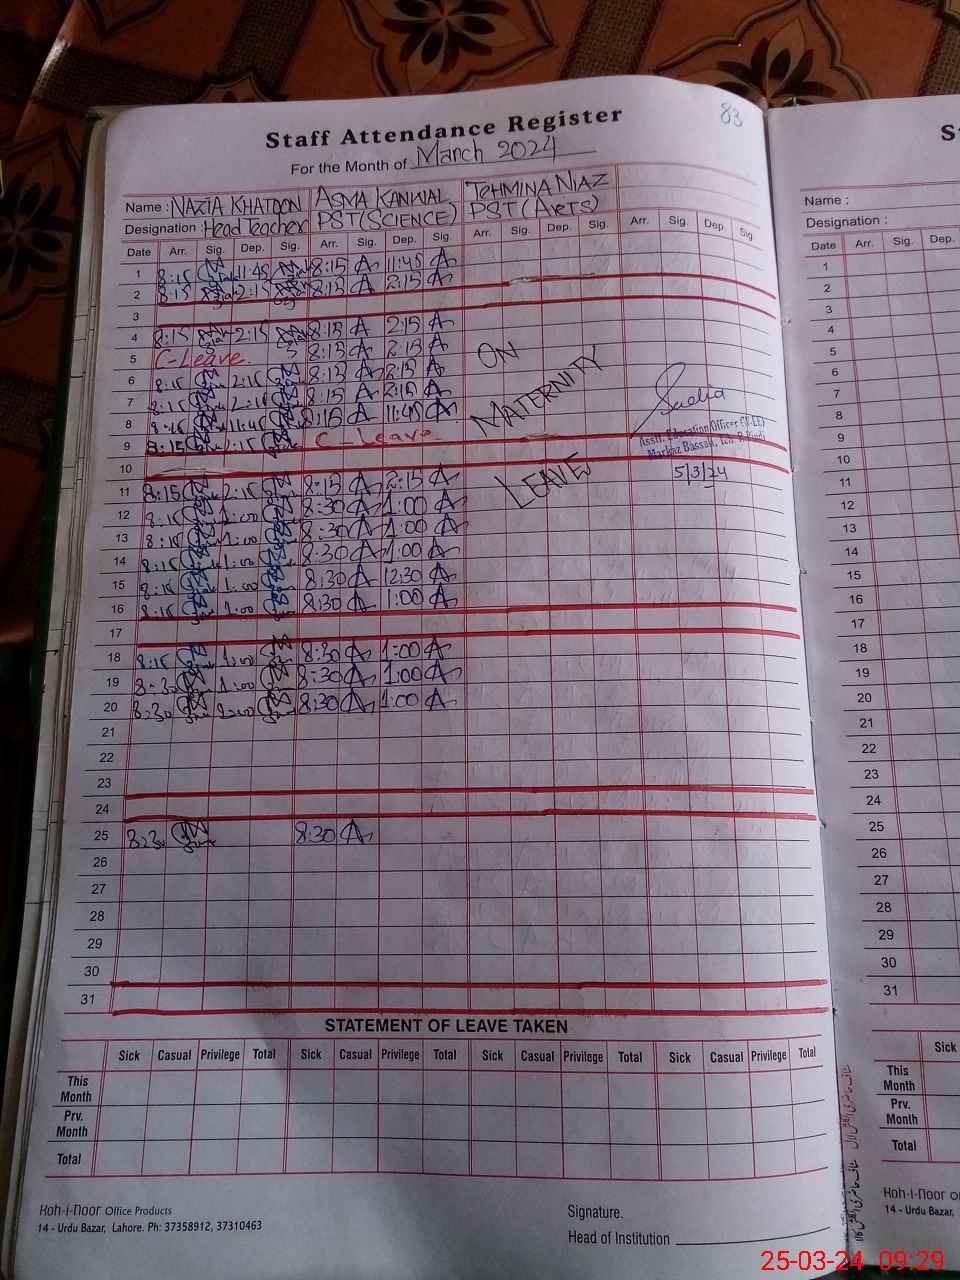 83
Staff Attendance Register
For the Month of March 2024
Name : NAZIA KHATOON ASMA KANWAL TEHMINA NIAZ
Designation : Head Teacher PST(SCIENCE) PST(ARTS)
Date Arr. Sig. Dep. Sig. Arr. Sig. Dep. Sig. Arr. Sig. Dep. Sig. Arr. Sig. Dep. Sig.
1 8:15 11:45 8:15 A 11:45 A
2 8:15 2:15 8:15 A 2:15 A
3
4 8:15 2:15 8:15 A 2:15 A
5 C-Leave. 8:15 A 2:15 A
6 8:15 2:15 8:15 A 2:15 A
7 8:15 2:15 8:15 A 2:15 A
8 8:15 11:45 8:15 A 11:45 A
9 8:15 2:15 C-Leave
10
11 8:15 2:15 8:15 A 2:15 A
12 8:15 1:00 8:30 A 1:00 A
13 8:15 1:00 8:30 A 1:00 A
14 8:15 1:00 8:30 A 1:00 A
15 8:15 1:00 8:30 A 12:30 A
16 8:15 1:00 8:30 A 1:00 A
17
18 8:15 1:00 8:30 A 1:00 A
19 8:30 1:00 8:30 A 1:00 A
20 8:30 8:30 A 1:00 A
21
22
23
24
25 8:30 8:30 A
26
27
28
29
30
31
ON
MATERNITY
LEAVE
Sadia
Asstt. Education Officer
Markaz Bassali, Teh: R.Pindi
5/3/24
STATEMENT OF LEAVE TAKEN
Sick Casual Privilege Total Sick Casual Privilege Total Sick Casual Privilege Total Sick Casual Privilege Total
This Month
Prv. Month
Total
Koh-i-Noor Office Products
14 - Urdu Bazar, Lahore. Ph: 37358912, 37310463
Signature.
Head of Institution
S
Name :
Designation :
Date Arr. Sig. Dep.
1
2
3
4
5
6
7
8
9
10
11
12
13
14
15
16
17
18
19
20
21
22
23
24
25
26
27
28
29
30
31
Sick
This Month
Prv. Month
Total
Koh-i-Noor
14 - Urdu Bazar,
25-03-24 09:29